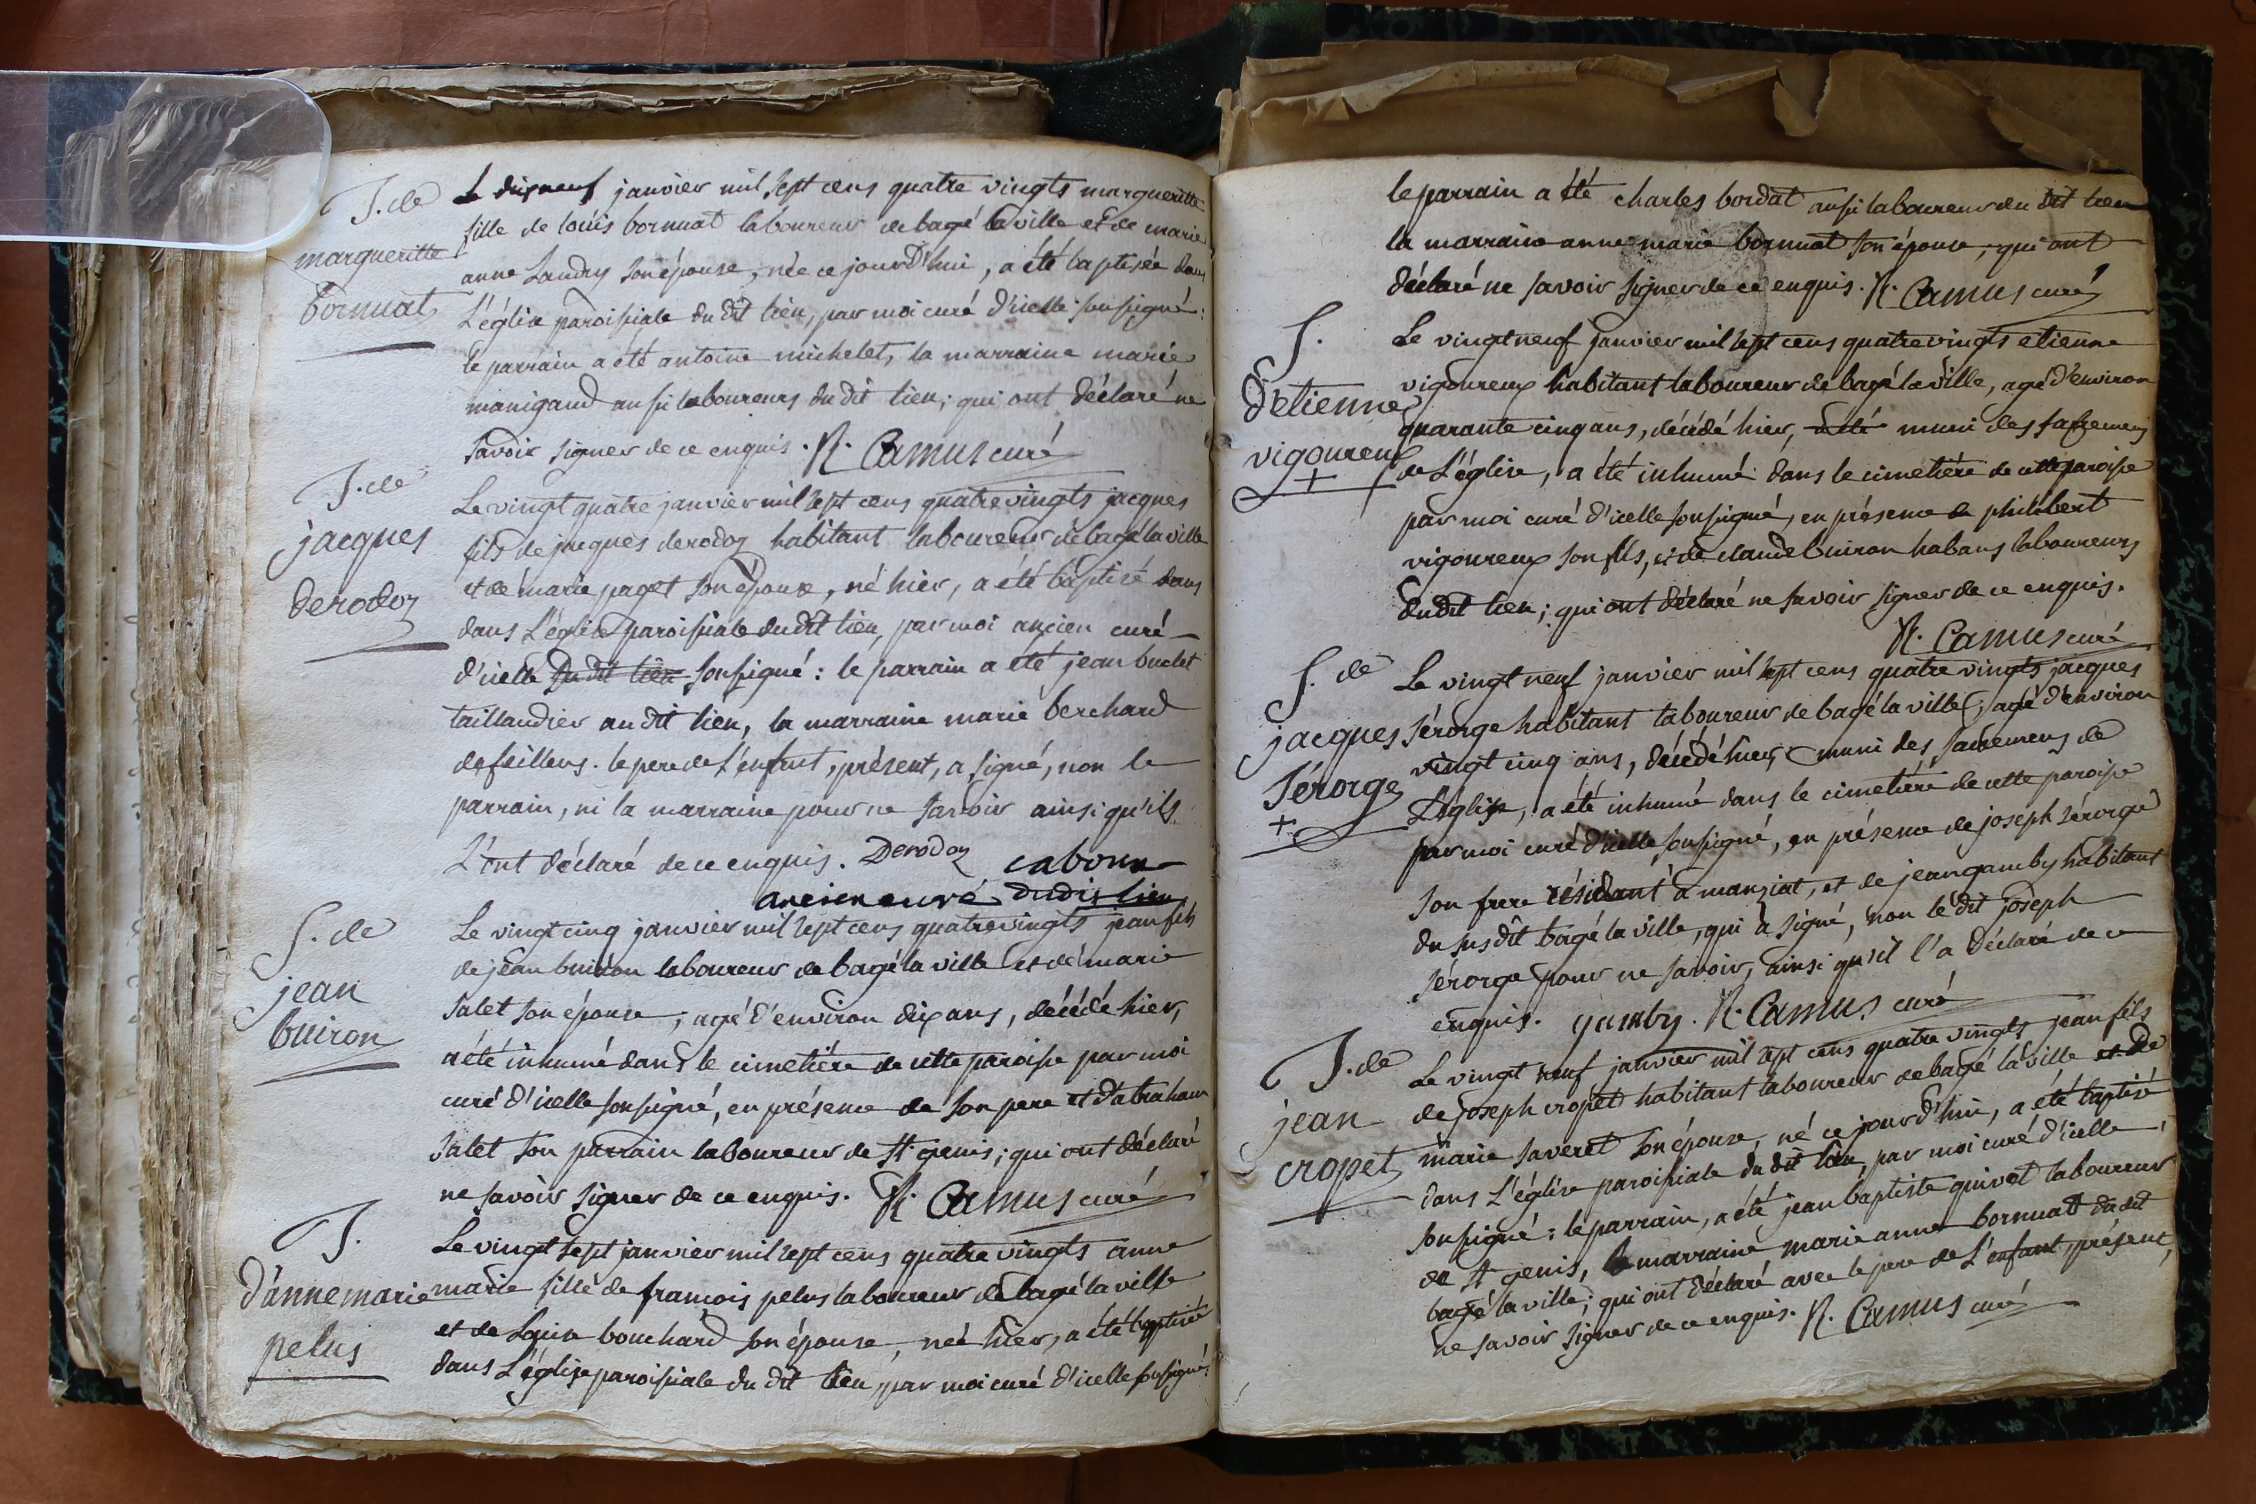 J. de
margueritte
bornuat
Le dixneuf janvier mil sept cens quatre vingts margueritte
fille de loüis bornuat laboureur de bagé la ville et de marie
anne Landry son épouse, née ce jourd'hui, a été baptisée dans
L'église paroissiale du dit lieu, par moi curé d'icelle soussigné:
le parrain a été antoine michelet, la marraine marie
manigand aussi laboureurs du dit lieu; qui ont déclaré ne
savoir signer de ce enquis. R. Camus curé
J. de
jacques
derodoz
Le vingt quatre janvier mil sept cens quatre vingts jacques
fils de jacques derodoz habitant laboureur de bagé la ville
et de marie paget son épouse, né hier, a été baptisé dans
dans L'église paroissiale du dit lieu, par moi ancien curé
d'icelle du dit lieu soussigné: le parrain a été jean buclet
taillandier au dit lieu, la marraine marie berchard
de feillens. le pere de L'enfant, présent, a signé, non le
parrain, ni la marraine pour ne savoir ainsi qu'ils
L'ont déclaré de ce enquis. Derodoz
ancien curé dudit lieu
S. de
jean
buiron
Le vingt cinq janvier mil sept cens quatre vingts jean fils
de jean buiron laboureur de bagé la ville et de marie
salet son épouse, agé d'environ dix ans, décédé hier,
a été inhumé dans le cimetiére de cette paroisse par moi
curé d'icelle soussigné, en présence de son pere et d'abraham
salet son parrain laboureur de st genis; qui ont déclaré
ne savoir signer de ce enquis. R. Camus curé
J.
d'anne marie
pelus
Le vingt sept janvier mil sept cens quatre vingts anne
marie fille de francois pelus laboureur de bagé la ville
et de Louise bouchard son épouse, née hier, a été baptisée
dans L'église paroissiale du dit lieu, par moi curé d'icelle soussigné:
le parrain a été charles bordat aussi laboureur du dit lieu
la marraine anne marie bornuat son épouse, qui ont
déclaré ne savoir signer de ce enquis. R. Camus curé
S.
d'etienne
vigoureux
+
Le vingt neuf janvier mil sept cens quatre vingts etienne
vigoureux habitant laboureur de bagé la ville, agé d'environ
quarante cinq ans, décédé hier, a été muni des sacremens
de L'église, a été inhumé dans le cimetiére de cette paroisse
par moi curé d'icelle soussigné, en présence de philibert
vigoureux son fils, et de claude buiron habans laboureurs
du dit lieu; qui ont déclaré ne savoir signer de ce enquis.
R. Camus curé
S. de
jacques
sérorge
+
Le vingt neuf janvier mil sept cens quatre vingts jacques
sérorge habitant laboureur de bagé la ville, agé d'environ
vingt cinq ans, décédé hier, muni des sacremens de
L'église, a été inhumé dans le cimetiére de cette paroisse
par moi curé d'icelle soussigné, en présence de joseph sérorge
son frere résidant à manziat, et de jean gamby habitant
du susdit bagé la ville, qui a signé, non le dit joseph
sérorge pour ne savoir, ainsi qu'il l'a déclaré de ce
enquis. gamby. R. Camus curé
J. de
jean
cropet
Le vingt neuf janvier mil sept cens quatre vingts jean fils
de joseph cropet habitant laboureur de bagé la ville et de
marie saveret son épouse, né ce jourd'hui, a été baptisé
dans L'église paroissiale du dit lieu, par moi curé d'icelle
soussigné: le parrain, a été jean baptiste quivet laboureur
de st genis, la marraine marie anne bornuat du dit
bagé la ville; qui ont déclaré avec le pere de L'enfant, présent,
ne savoir signer de ce enquis. R. Camus curé